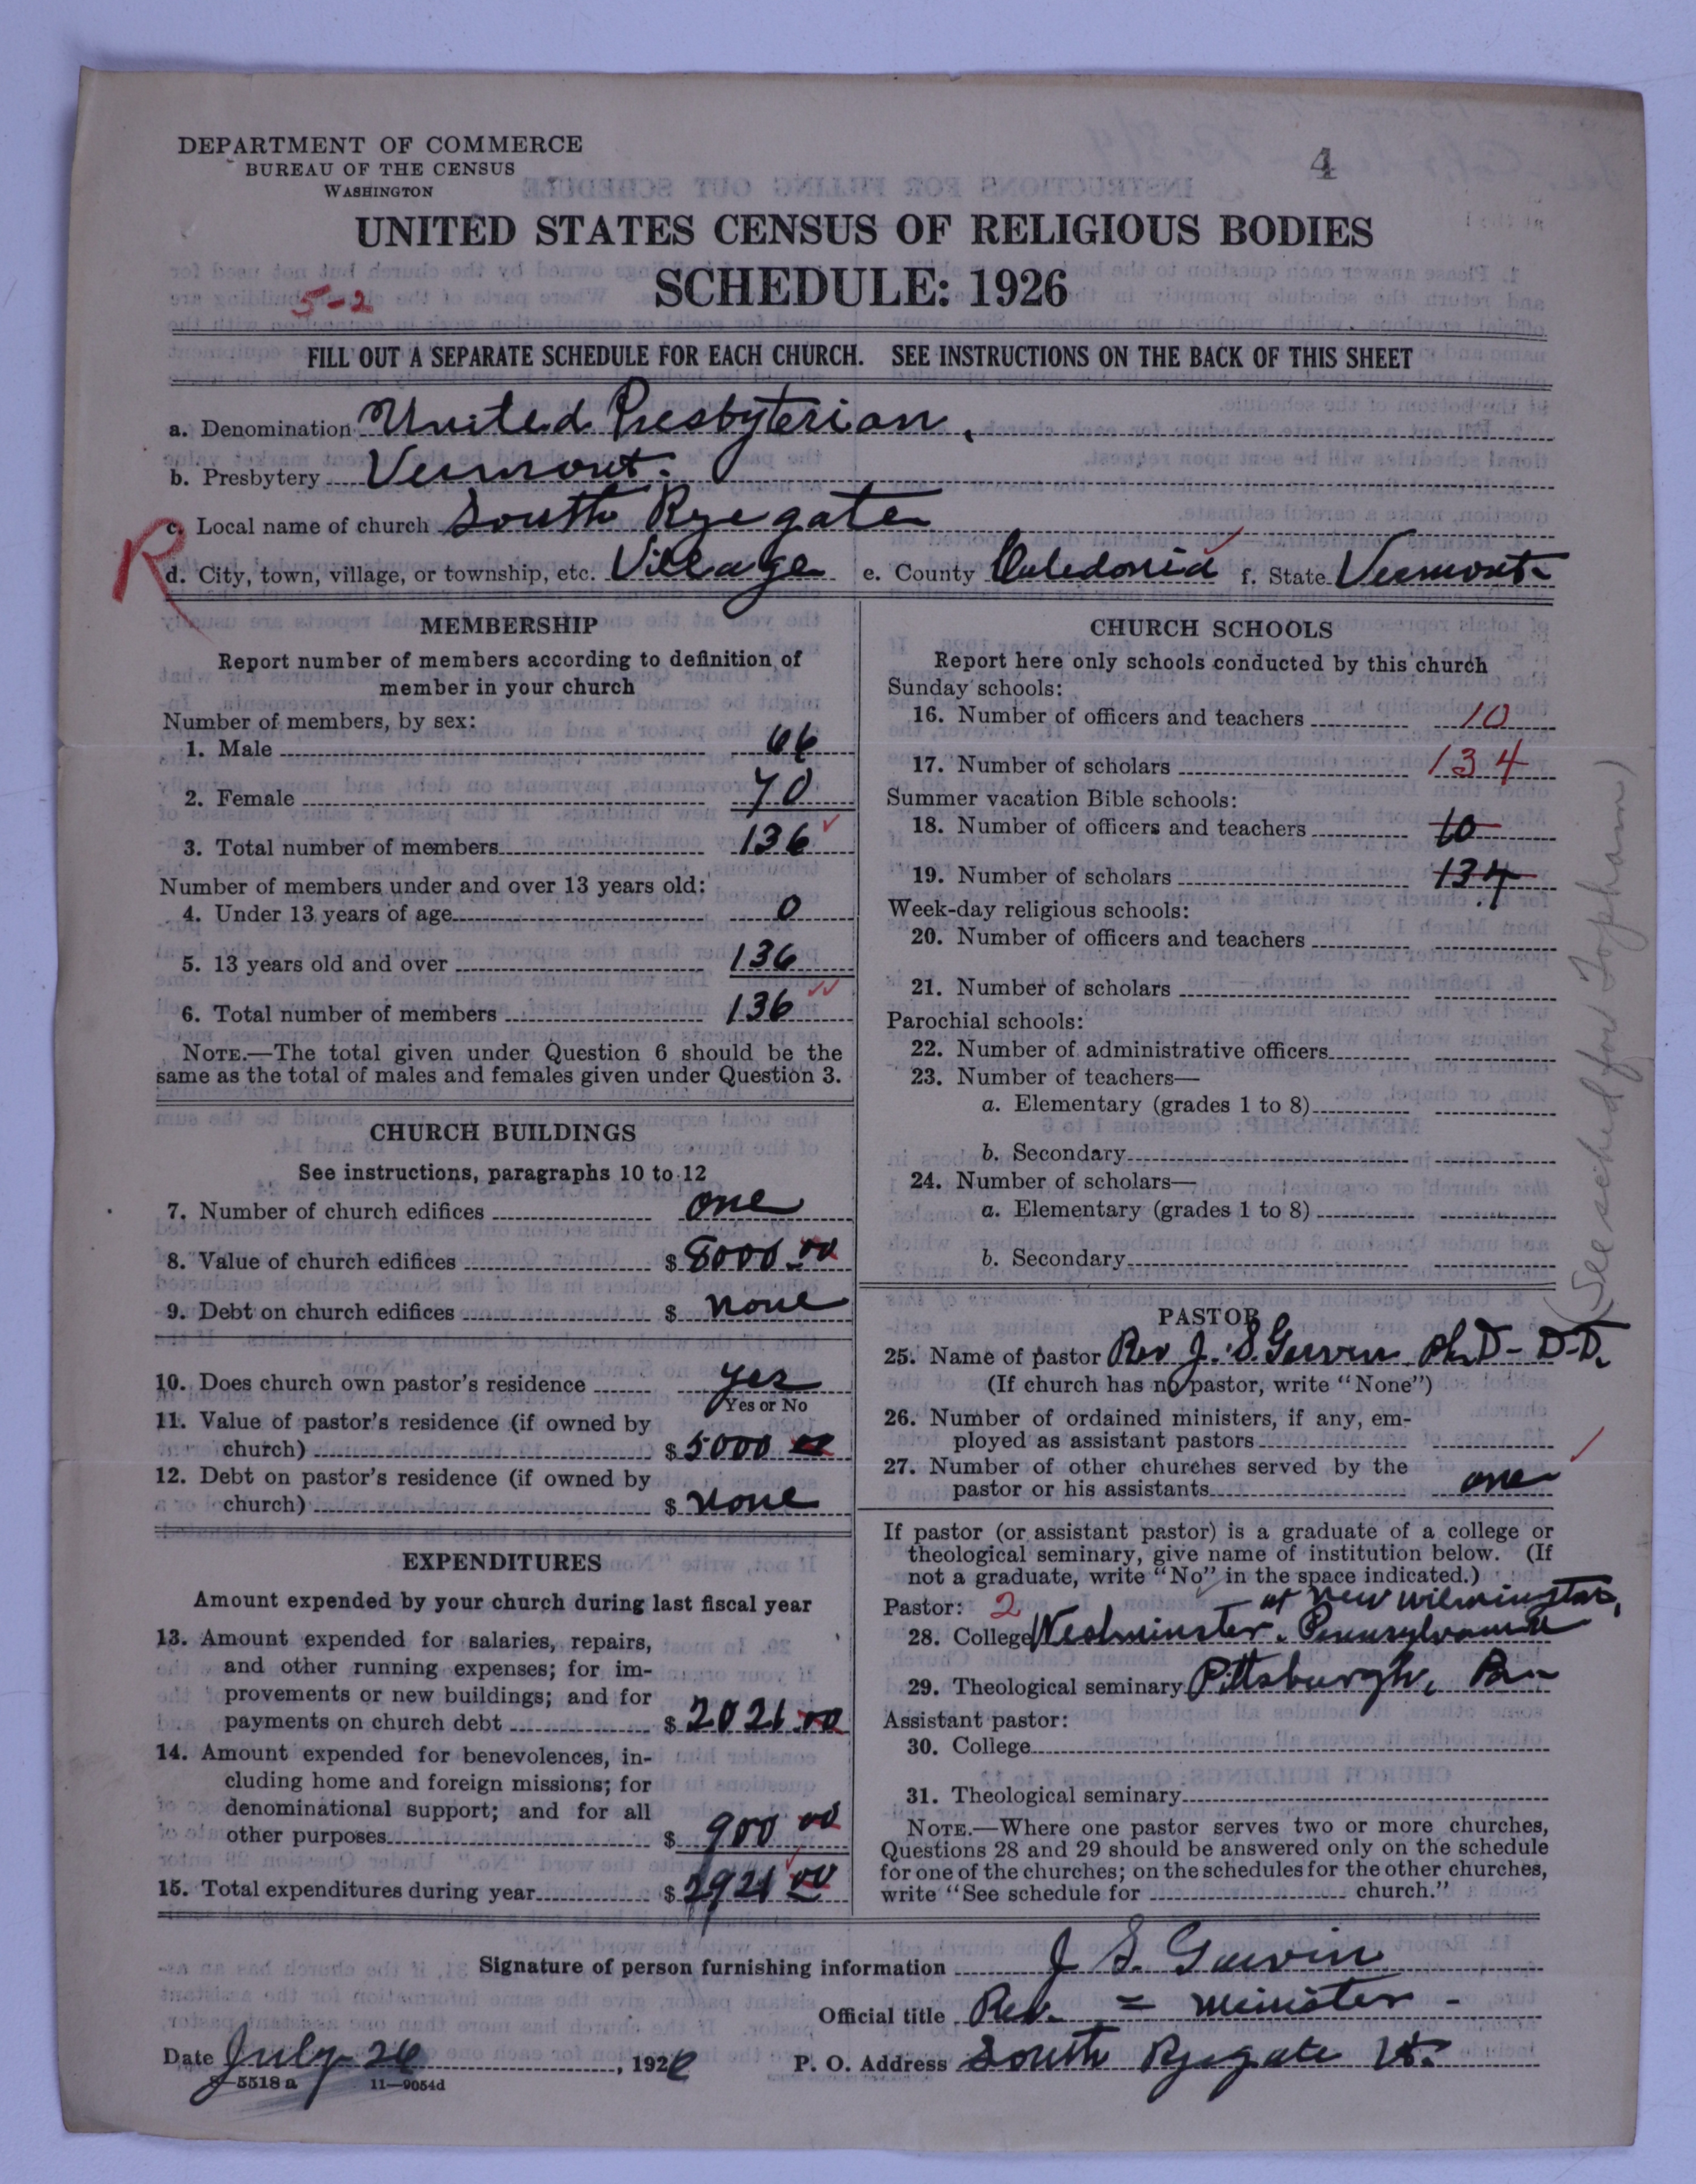 DEPARTMENT OF COMMERCE
BUREAU OF THE CENSUS
WASHINGTON
4
UNITED STATES CENSUS OF RELIGIOUS BODIES
SCHEDULE: 1926
5-2
FILL OUT A SEPARATE SCHEDULE FOR EACH CHURCH. SEE INSTRUCTIONS ON THE BACK OF THIS SHEET
a. Denomination United Presbyterian.
b. Presbytery Vermont.
c. Local name of church South Ryegate
R
d. City, town, village, or township, etc. Village e. County Caledonia f. State Vermont
MEMBERSHIP
Report number of members according to definition of
member in your church
Number of members, by sex:
1. Male 66
2. Female 70
3. Total number of members 136
Number of members under and over 13 years old:
4. Under 13 years of age 0
5. 13 years old and over 136
6. Total number of members 136
NOTE.—The total given under Question 6 should be the
same as the total of males and females given under Question 3.
CHURCH BUILDINGS
See instructions, paragraphs 10 to 12
7. Number of church edifices one
8. Value of church edifices $ 8000.00
9. Debt on church edifices $ none
10. Does church own pastor's residence yes
Yes or No
11. Value of pastor's residence (if owned by
church) $ 5000 00
12. Debt on pastor's residence (if owned by
church) $ none
EXPENDITURES
Amount expended by your church during last fiscal year
13. Amount expended for salaries, repairs,
and other running expenses; for im-
provements or new buildings; and for
payments on church debt $ 2021.00
14. Amount expended for benevolences, in-
cluding home and foreign missions; for
denominational support; and for all
other purposes $ 900 00
15. Total expenditures during year $ 2921 00
CHURCH SCHOOLS
Report here only schools conducted by this church
Sunday schools:
16. Number of officers and teachers 10
17. Number of scholars 134
Summer vacation Bible schools:
18. Number of officers and teachers 10
19. Number of scholars 134
Week-day religious schools:
20. Number of officers and teachers
21. Number of scholars
Parochial schools:
22. Number of administrative officers
23. Number of teachers—
a. Elementary (grades 1 to 8)
b. Secondary
24. Number of scholars—
a. Elementary (grades 1 to 8)
b. Secondary
PASTOR
25. Name of pastor Rev J. S. Garvin Ph.D- D-D.
(If church has no pastor, write "None")
26. Number of ordained ministers, if any, em-
ployed as assistant pastors
27. Number of other churches served by the
pastor or his assistants one
If pastor (or assistant pastor) is a graduate of a college or
theological seminary, give name of institution below. (If
not a graduate, write "No" in the space indicated.)
Pastor: 2 at New Wilmington,
28. College Westminster. Pennsylvania
29. Theological seminary Pittsburgh, Pa
Assistant pastor:
30. College
31. Theological seminary
NOTE.—Where one pastor serves two or more churches,
Questions 28 and 29 should be answered only on the schedule
for one of the churches; on the schedules for the other churches,
write "See schedule for church."
(See sched for Topham)
Signature of person furnishing information J S. Garvin
Official title Rev. = minister -
Date July 26, 1926 P. O. Address South Ryegate Vt.
8—5518 a 11—9054d